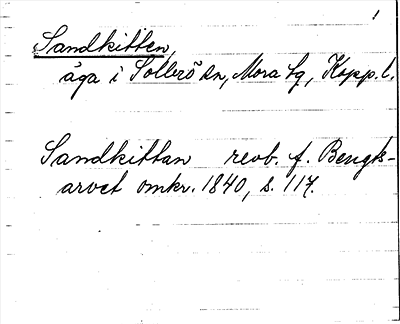 1
Sandkitten,
äga i Sollerö sn, Mora tg, Kopp. l.
Sandkittan revb. f. Bengts-
arvet omkr. 1840, s. 117.